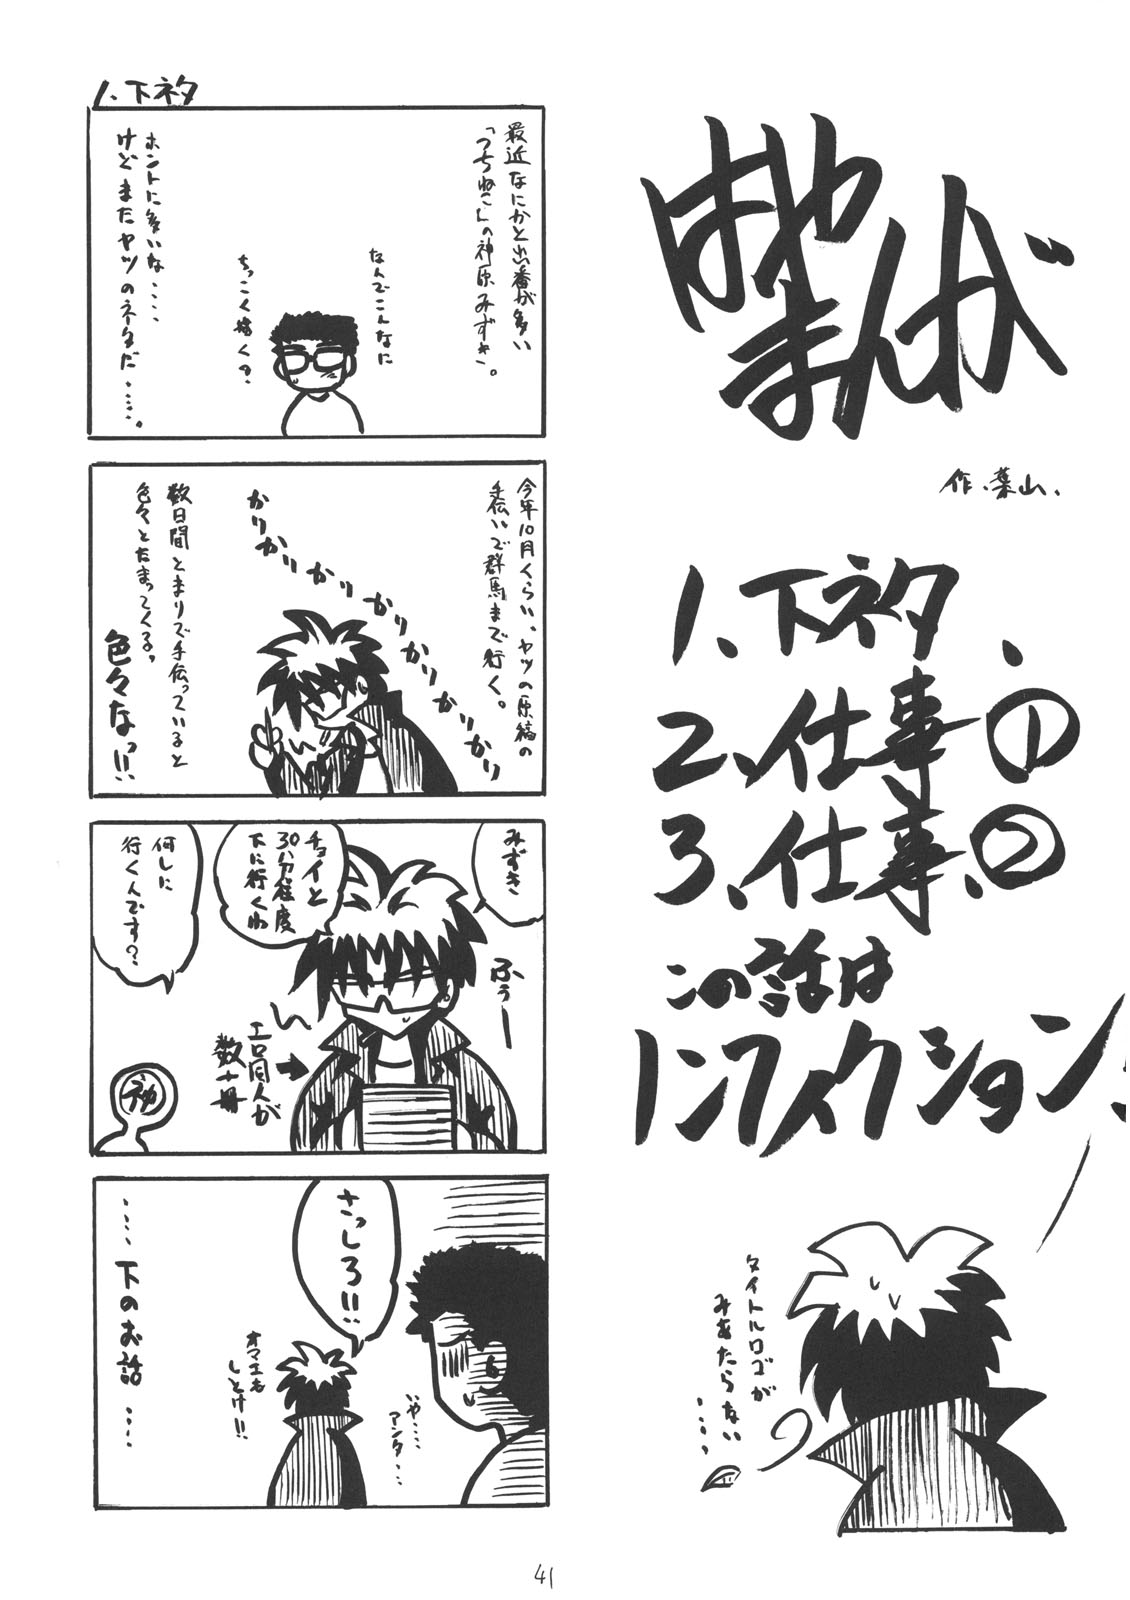 はや
まんが
作.葉山.
1、下ネタ、
2、仕事①
3、仕事、②
この話は
ノンフィクション!
タイトルロゴが
みあたらない
‥‥。
1、下ネタ
最近なにかと出番が多い
「つちねこんの神原みずき」。
なんでこんなに
ちっこく描くの?
ホントに多いな‥‥
けどまたヤツのネタだ‥‥‥。
今年10月くらい、ヤツの原稿の
手伝いで群馬まで行く。
かりかりかりかりかりかりかりかり
数日間とまりで手伝っていると
色々とたまってくる。
色々なっ!!
みずき
チョイと
30分程度
下に行くわ
何しに
行くんです?
ふぅー
エロ同人が
数十冊
さっしろ!!
オマエも
しとけ!!
いや‥‥
アンタ‥‥
‥‥下のお話‥‥
41